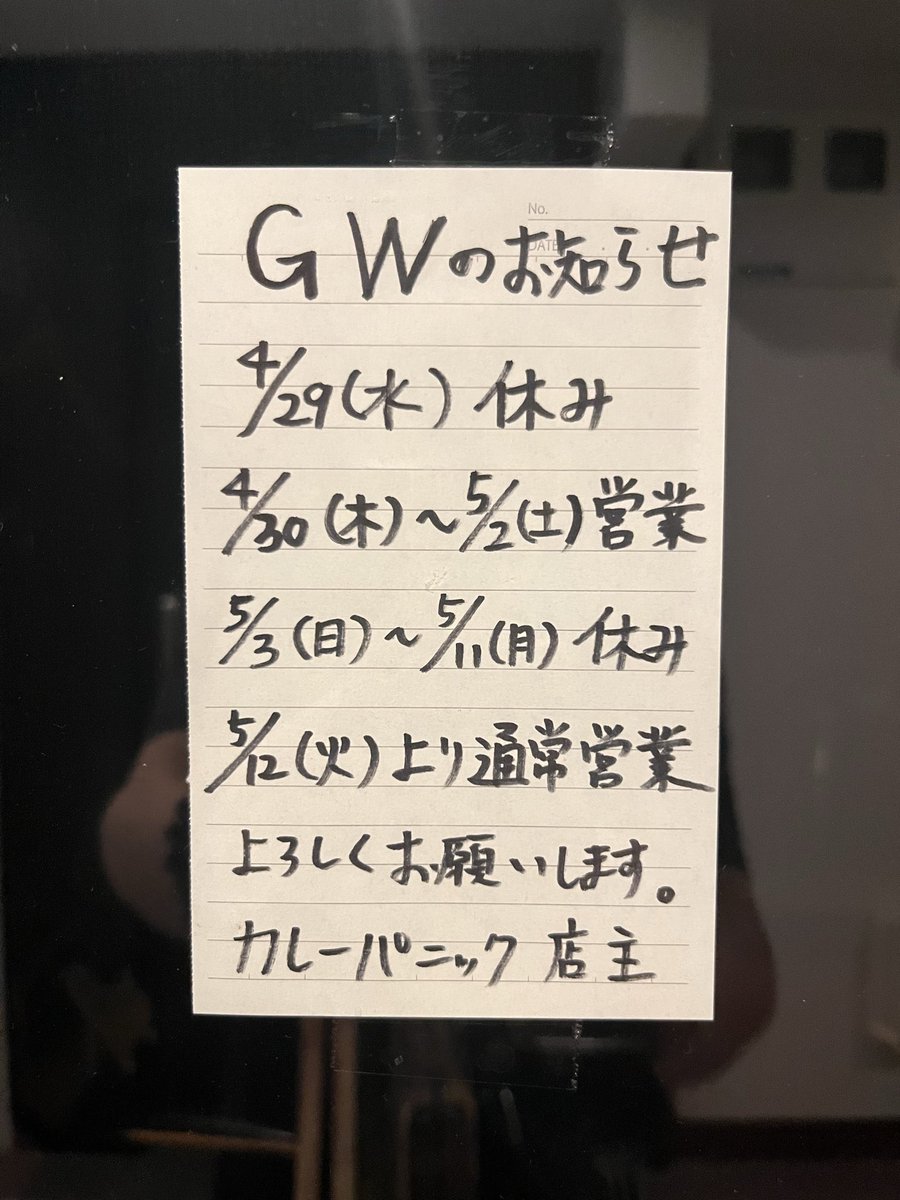 No.
DATE
GWのお知らせ
4/29(水) 休み
4/30(木)～5/2(土)営業
5/3(日)～5/11(月) 休み
5/12(火)より通常営業
よろしくお願いします。
カレーパニック 店主